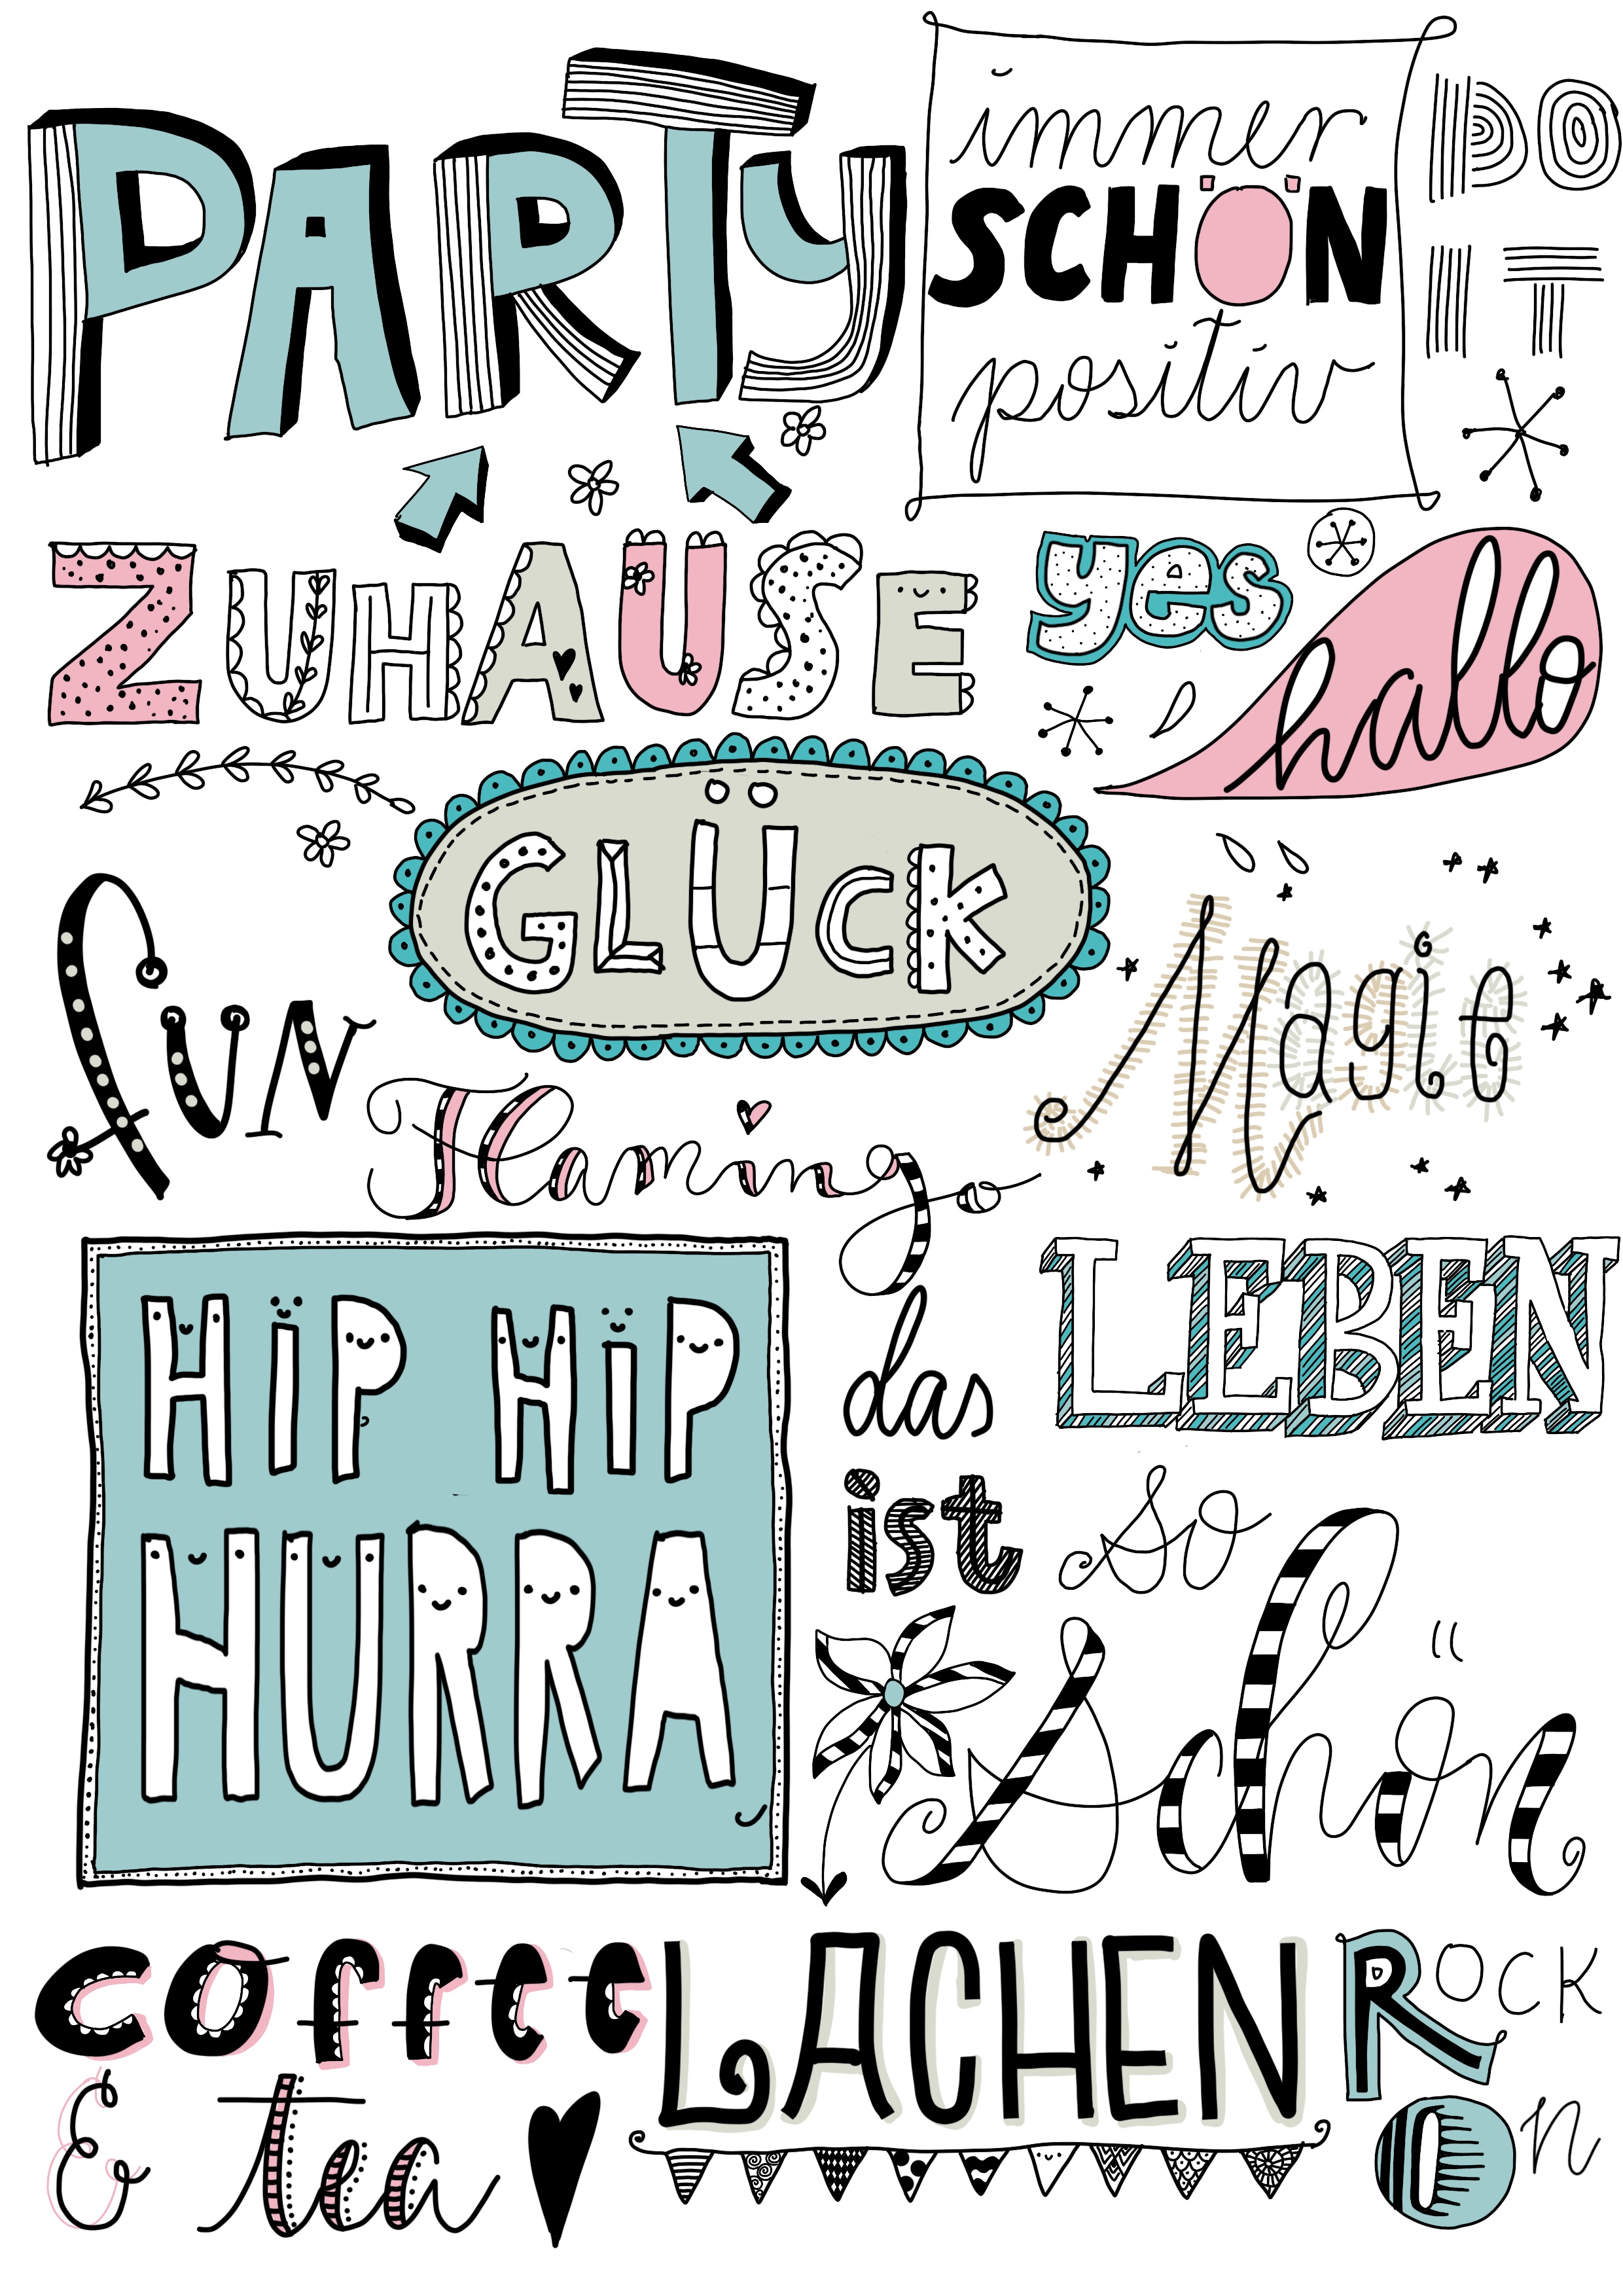 PARTY
immer
SCHÖN
positiv
DO
IT
ZUHAUSE
yes
hallo
GLÜCK
fUN
Magie
Flamingo
HIP HIP
HURRA
das LEBEN
ist so
Schön
coffee
& tea
LACHEN
ROCK
On